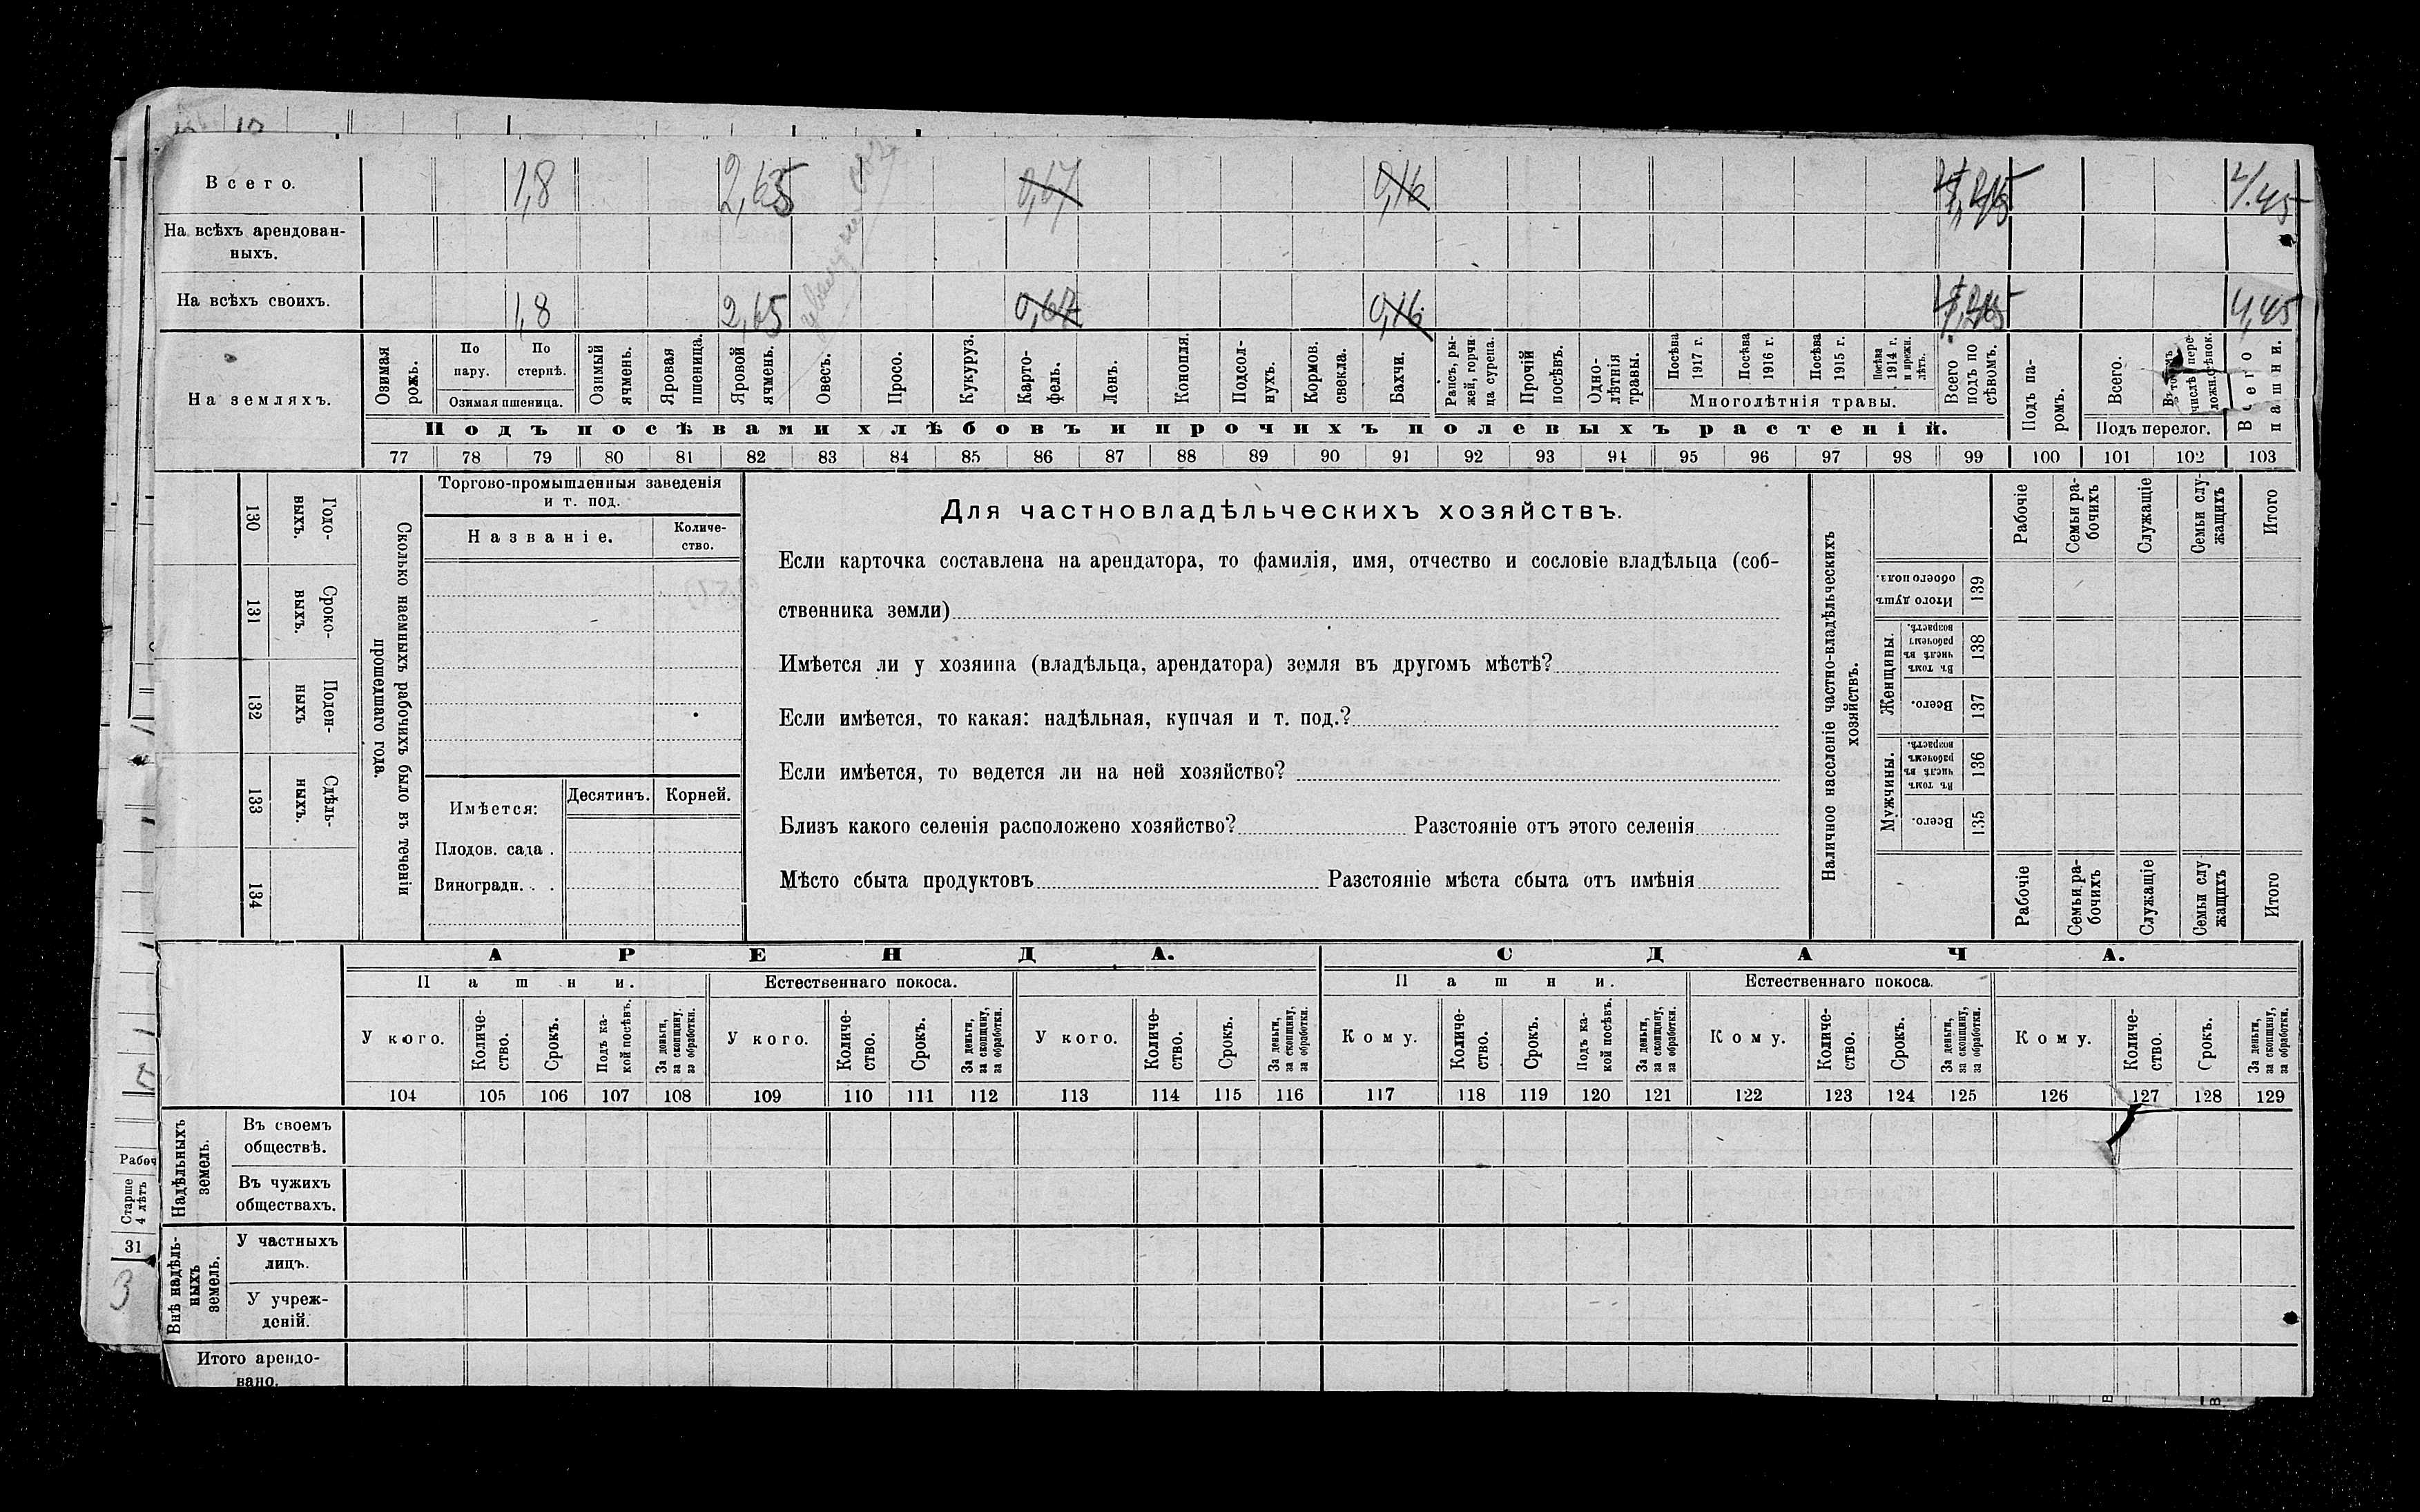 Всего. 1,8 2,65 0,67 0,16 4,45
На всѣхъ арендован-
ныхъ.
На всѣхъ своихъ. 1,8 2,65 0,67 0,16 4,45
На земляхъ.
Озимая рожь.
По пару.
По стернѣ.
Озимая пшеница.
Озимый ячмень.
Яровая пшеница.
Яровой ячмень.
Овесъ.
Просо.
Кукуруз.
Карто-
фель.
Ленъ.
Конопля.
Подсол-
нухъ.
Кормов.
свекла.
Бахчи.
Рапсъ, ры-
жей, горчи-
ца сурепа.
Прочій
посѣвъ.
Одно-
лѣтнія
травы.
Посѣва
1917 г.
Посѣва
1916 г.
Посѣва
1915 г.
Посѣва
1914 г.
и прежн.
лѣтъ.
Многолѣтнія травы.
Всего
подъ по
сѣвомъ.
Подъ па-
ромъ.
Всего.
Подъ перелог.
Всего
пашни.
Подъ посѣвами хлѣбовъ и прочихъ полевыхъ растеній.
77 78 79 80 81 82 83 84 85 86 87 88 89 90 91 92 93 94 95 96 97 98 99 100 101 102 103
130 Годо-
ныхъ.
131 Сроко-
выхъ.
132 Поден-
ныхъ
133 Сдѣль-
ныхъ.
134
Сколько наемныхъ рабочихъ было въ теченіи
прошедшаго года.
Торгово-промышленныя заведенія
и т. под.
Названіе.
Количе-
ство.
Имѣется:
Десятинъ. Корней.
Плодов. сада .
Виноградн. . .
Для частновладѣльческихъ хозяйствъ.
Если карточка составлена на арендатора, то фамилія, имя, отчество и сословіе владѣльца (соб-
ственника земли)
Имѣется ли у хозяина (владѣльца, арендатора) земля въ другомъ мѣстѣ?
Если имѣется, то какая: надѣльная, купчая и т. под.?
Если имѣется, то ведется ли на ней хозяйство?
Близъ какого селенія расположено хозяйство? Разстояніе отъ этого селенія
Мѣсто сбыта продуктовъ Разстояніе мѣста сбыта отъ имѣнія
Наличное населеніе частно-владѣльческихъ
хозяйствъ.
Рабочіе
Семьи ра-
бочихъ
Служащіе
Семьи слу-
жащихъ
Итого
Итого душъ
обоего пола.
139
Женщины.
Въ томъ
числѣ въ
рабочемъ
возрастѣ.
138
Всего.
137
Мужчины.
Въ томъ
числѣ въ
рабочемъ
возрастѣ.
136
Всего.
135
Рабочіе
Семьи ра-
бочихъ
Служащіе
Семьи слу
жащихъ
Итого
АРЕНДА. СДАЧА.
Пашни. Естественнаго покоса. Пашни. Естественнаго покоса.
У кого.
Количе-
ство.
Срокъ.
Подъ ка-
кой посѣвъ.
За деньги,
за скопщину,
за обработки.
У кого.
Количе-
ство.
Срокъ.
За деньги,
за скопщину,
за обработки.
У кого.
Количе-
ство.
Срокъ.
За деньги,
за скопщину,
за обработки.
Кому.
Количе-
ство.
Срокъ.
Подъ ка-
кой посѣвъ.
За деньги,
за скопщину,
за обработки.
Кому.
Количе-
ство.
Срокъ.
За деньги,
за скопщину,
за обработки.
Кому.
Количе-
ство.
Срокъ.
За деньги,
за скопщину,
за обработки.
104 105 106 107 108 109 110 111 112 113 114 115 116 117 118 119 120 121 122 123 124 125 126 127 128 129
Надѣльныхъ
земель.
Въ своемъ
обществѣ.
Въ чужихъ
обществахъ.
Внѣ надѣль-
ныхъ
земель.
У частныхъ
лицъ.
У учреж-
деній.
Итого арендо-
вано.
Рабоч
Старше
4 лѣтъ
31
3